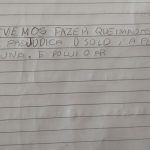 VEMOS FAZER QUEIMADAS
PREJUDICA O SOLO, A F
UNA. E POLUI O AR.